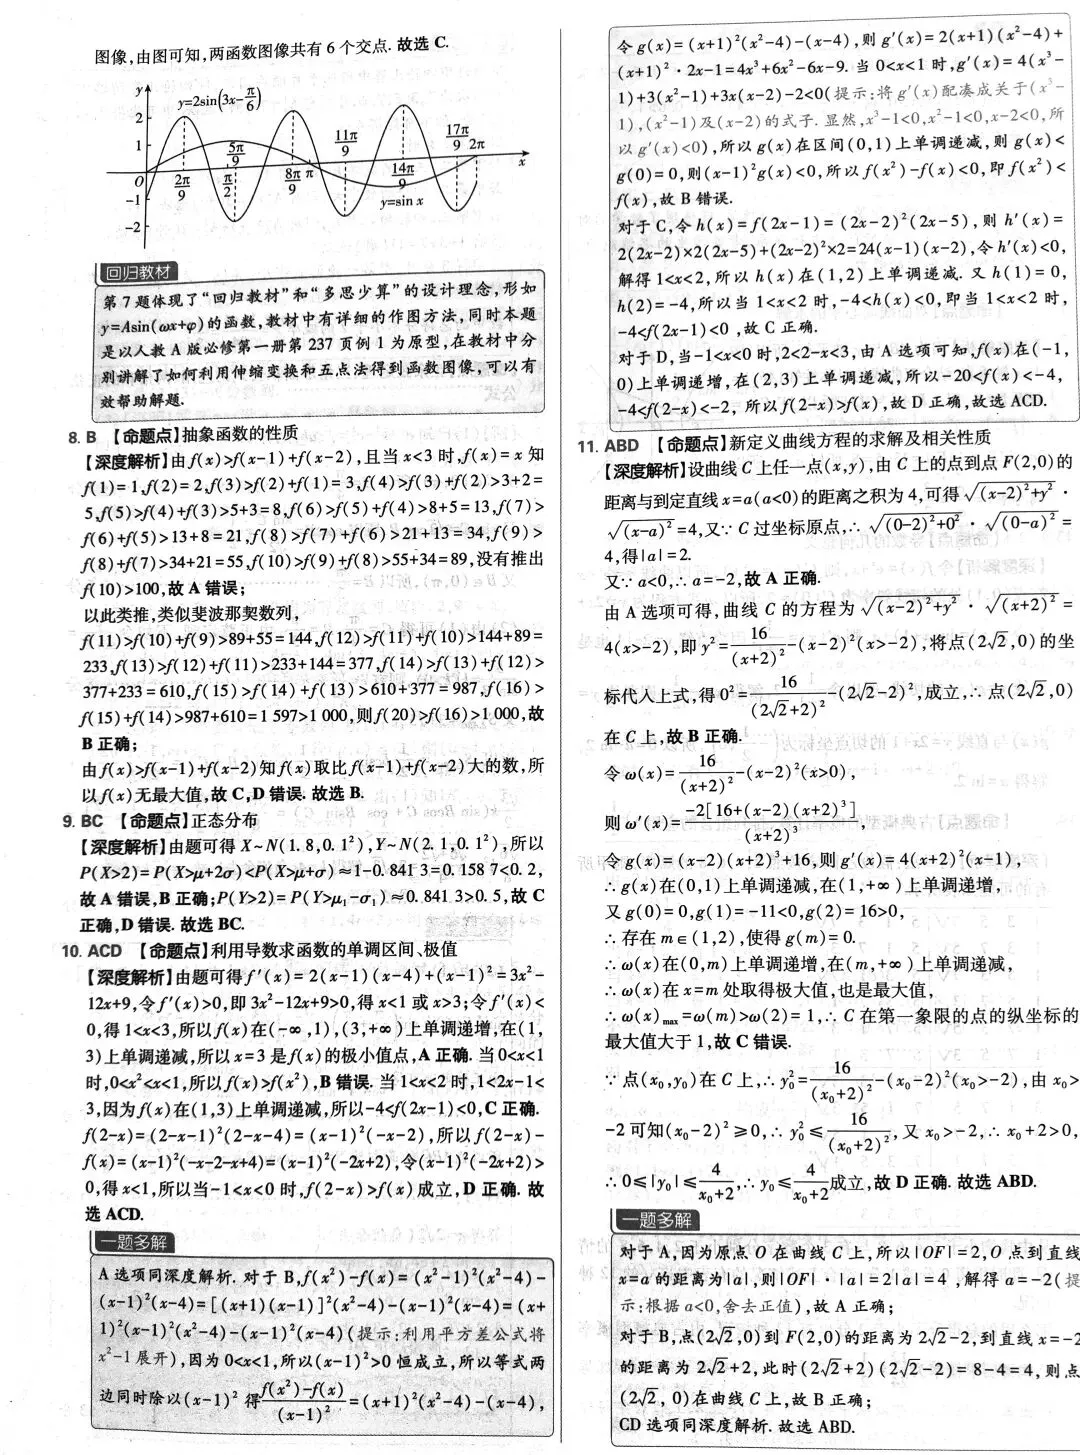 图像,由图可知,两函数图像共有6个交点. 故选 C.
y
y=2sin(3x-π/6)
2
1
O
-1
-2
2π/9
π/2
5π/9
8π/9
π
11π/9
14π/9
17π/9
2π
x
y=sin x
回归教材
第7题体现了“回归教材”和“多思少算”的设计理念,形如
y=Asin(ωx+φ)的函数,教材中有详细的作图方法,同时本题
是以人教A版必修第一册第237页例1为原型,在教材中分
别讲解了如何利用伸缩变换和五点法得到函数图像,可以有
效帮助解题.
8. B 【命题点】抽象函数的性质
【深度解析】由f(x)>f(x-1)+f(x-2),且当x<3时,f(x)=x知
f(1)=1,f(2)=2,f(3)>f(2)+f(1)=3,f(4)>f(3)+f(2)>3+2=
5,f(5)>f(4)+f(3)>5+3=8,f(6)>f(5)+f(4)>8+5=13,f(7)>
f(6)+f(5)>13+8=21,f(8)>f(7)+f(6)>21+13=34,f(9)>
f(8)+f(7)>34+21=55,f(10)>f(9)+f(8)>55+34=89,没有推出
f(10)>100,故A错误;
以此类推,类似斐波那契数列,
f(11)>f(10)+f(9)>89+55=144,f(12)>f(11)+f(10)>144+89=
233,f(13)>f(12)+f(11)>233+144=377,f(14)>f(13)+f(12)>
377+233=610,f(15)>f(14)+f(13)>610+377=987,f(16)>
f(15)+f(14)>987+610=1 597>1 000,则f(20)>f(16)>1 000,故
B正确;
由f(x)>f(x-1)+f(x-2)知f(x)取比f(x-1)+f(x-2)大的数,所
以f(x)无最大值,故C,D错误. 故选B.
9. BC 【命题点】正态分布
【深度解析】由题可得X~N(1.8,0.1²),Y~N(2.1,0.1²),所以
P(X>2)=P(X>μ+2σ)<P(X>μ+σ)≈1-0.841 3=0.158 7<0.2,
故A错误,B正确;P(Y>2)=P(Y>μ₁-σ₁)≈0.841 3>0.5,故C
正确,D错误. 故选BC.
10. ACD 【命题点】利用导数求函数的单调区间、极值
【深度解析】由题可得f′(x)=2(x-1)(x-4)+(x-1)²=3x²-
12x+9,令f′(x)>0,即3x²-12x+9>0,得x<1或x>3;令f′(x)<
0,得1<x<3,所以f(x)在(-∞,1),(3,+∞)上单调递增,在(1,
3)上单调递减,所以x=3是f(x)的极小值点,A正确. 当0<x<1
时,0<x²<x<1,所以f(x)>f(x²),B错误. 当1<x<2时,1<2x-1<
3,因为f(x)在(1,3)上单调递减,所以-4<f(2x-1)<0,C正确.
f(2-x)=(2-x-1)²(2-x-4)=(x-1)²(-x-2),所以f(2-x)-
f(x)=(x-1)²(-x-2-x+4)=(x-1)²(-2x+2),令(x-1)²(-2x+2)>
0,得x<1,所以当-1<x<0时,f(2-x)>f(x)成立,D正确. 故
选ACD.
一题多解
A选项同深度解析. 对于B,f(x²)-f(x)=(x²-1)²(x²-4)-
(x-1)²(x-4)=[(x+1)(x-1)]²(x²-4)-(x-1)²(x-4)=(x+
1)²(x-1)²(x²-4)-(x-1)²(x-4)(提示:利用平方差公式将
x²-1展开),因为0<x<1,所以(x-1)²>0恒成立,所以等式两
边同时除以(x-1)²得(f(x²)-f(x))/(x-1)²=(x+1)²(x²-4)-(x-4),
令g(x)=(x+1)²(x²-4)-(x-4),则g′(x)=2(x+1)(x²-4)+
(x+1)²·2x-1=4x³+6x²-6x-9. 当0<x<1时,g′(x)=4(x³-
1)+3(x²-1)+3x(x-2)-2<0(提示:将g′(x)配凑成关于(x³-
1),(x²-1)及(x-2)的式子. 显然,x³-1<0,x²-1<0,x-2<0,所
以g′(x)<0),所以g(x)在区间(0,1)上单调递减,则g(x)<
g(0)=0,则(x-1)²g(x)<0,所以f(x²)-f(x)<0,即f(x²)<
f(x),故B错误.
对于C,令h(x)=f(2x-1)=(2x-2)²(2x-5),则h′(x)=
2(2x-2)×2(2x-5)+(2x-2)²×2=24(x-1)(x-2),令h′(x)<0,
解得1<x<2,所以h(x)在(1,2)上单调递减. 又h(1)=0,
h(2)=-4,所以当1<x<2时,-4<h(x)<0,即当1<x<2时,
-4<f(2x-1)<0,故C正确.
对于D,当-1<x<0时,2<2-x<3,由A选项可知,f(x)在(-1,
0)上单调递增,在(2,3)上单调递减,所以-20<f(x)<-4,
-4<f(2-x)<-2,所以f(2-x)>f(x),故D正确,故选ACD.
11. ABD 【命题点】新定义曲线方程的求解及相关性质
【深度解析】设曲线C上任一点(x,y),由C上的点到点F(2,0)的
距离与到定直线x=a(a<0)的距离之积为4,可得√((x-2)²+y²)·
√((x-a)²)=4,又∵C过坐标原点,∴√((0-2)²+0²)·√((0-a)²)=
4,得|a|=2.
又∵a<0,∴a=-2,故A正确.
由A选项可得,曲线C的方程为√((x-2)²+y²)·√((x+2)²)=
4(x>-2),即y²=16/(x+2)²-(x-2)²(x>-2),将点(2√2,0)的坐
标代入上式,得0²=16/(2√2+2)²-(2√2-2)²,成立,∴点(2√2,0)
在C上,故B正确.
令ω(x)=16/(x+2)²-(x-2)²(x>0),
则ω′(x)=-2[16+(x-2)(x+2)³]/(x+2)³,
令g(x)=(x-2)(x+2)³+16,则g′(x)=4(x+2)²(x-1),
∴g(x)在(0,1)上单调递减,在(1,+∞)上单调递增,
又g(0)=0,g(1)=-11<0,g(2)=16>0,
∴存在m∈(1,2),使得g(m)=0.
∴ω(x)在(0,m)上单调递增,在(m,+∞)上单调递减,
∴ω(x)在x=m处取得极大值,也是最大值,
∴ω(x)max=ω(m)>ω(2)=1,∴C在第一象限的点的纵坐标的
最大值大于1,故C错误.
∵点(x₀,y₀)在C上,∴y₀²=16/(x₀+2)²-(x₀-2)²(x₀>-2),由x₀>
-2可知(x₀-2)²≥0,∴y₀²≤16/(x₀+2)²,又x₀>-2,∴x₀+2>0,
∴0≤|y₀|≤4/(x₀+2),∴y₀≤4/(x₀+2)成立,故D正确. 故选ABD.
一题多解
对于A,因为原点O在曲线C上,所以|OF|=2,O点到直线
x=a的距离为|a|,则|OF|·|a|=2|a|=4,解得a=-2(提
示:根据a<0,舍去正值),故A正确;
对于B,点(2√2,0)到F(2,0)的距离为2√2-2,到直线x=-2
的距离为2√2+2,此时(2√2+2)(2√2-2)=8-4=4,则点
(2√2,0)在曲线C上,故B正确;
CD选项同深度解析. 故选ABD.